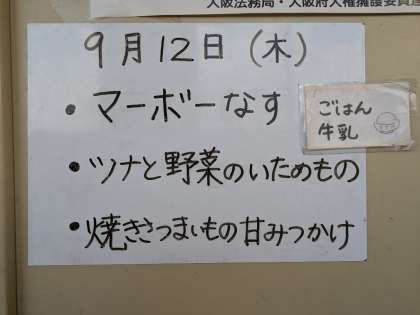 大阪法務局・大阪府人権擁護委員連
9月12日(木)
・マーボーなす
ごはん
牛乳
・ツナと野菜のいためもの
・焼きさつまいもの甘みつかけ